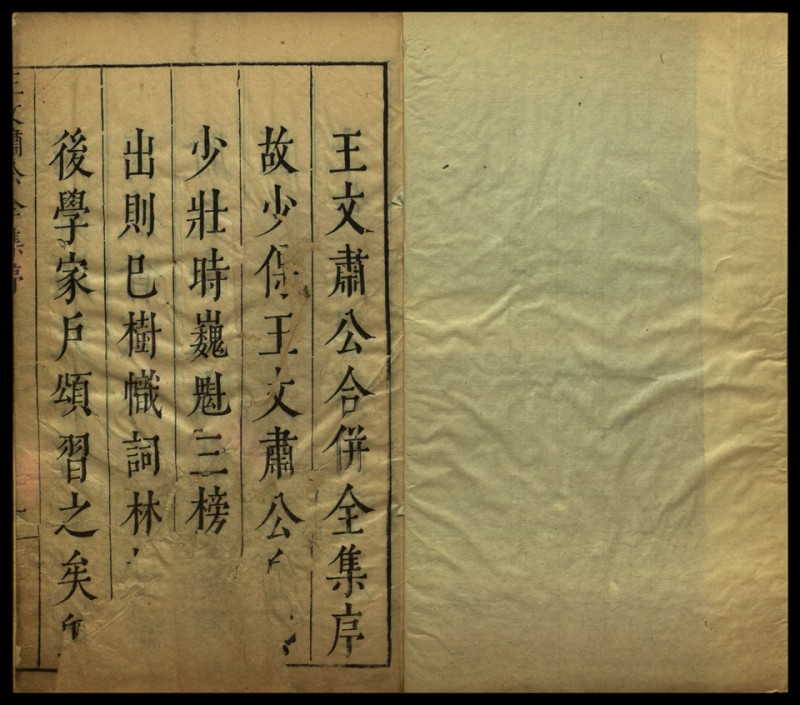 王文肅公合併全集序
故少保王文肅公
少壯時巍魁三榜
出則已樹幟詞林
後學家戶頌習之矣
王文肅公全集序